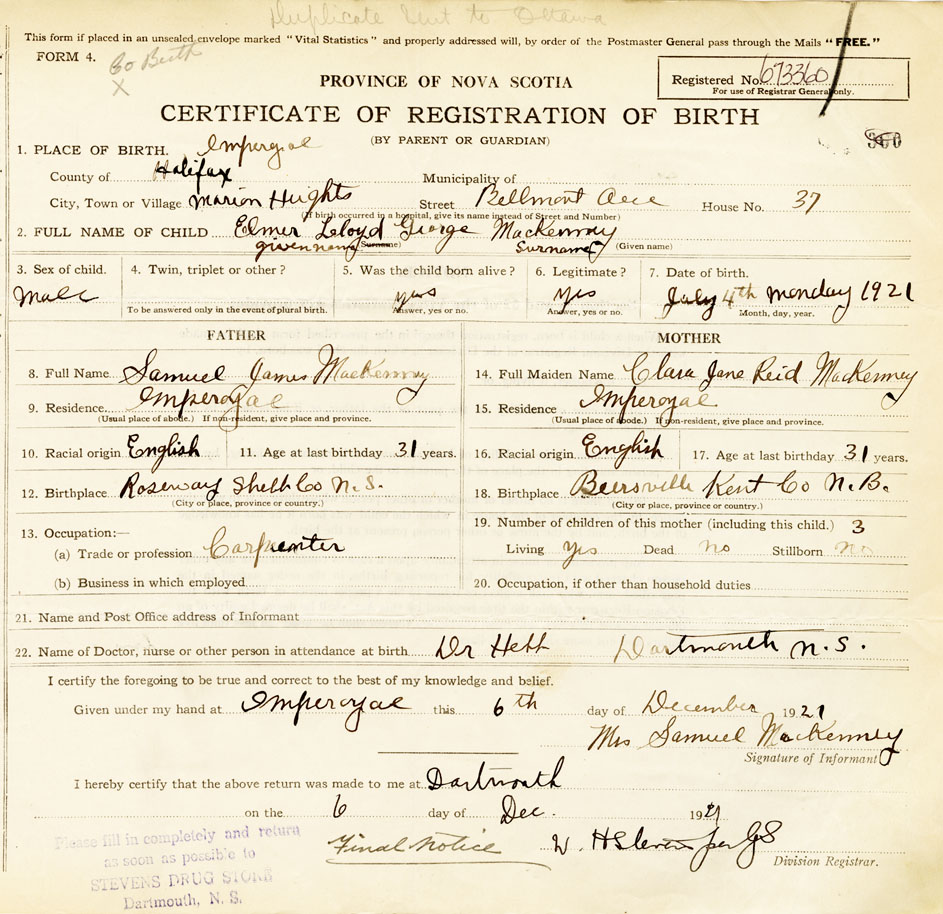 Duplicate Sent to Ottawa
This form if placed in an unsealed envelope marked "Vital Statistics" and properly addressed will, by order of the Postmaster General pass through the Mails "FREE."
FORM 4.
Co Birth
X
PROVINCE OF NOVA SCOTIA
Registered No. 673360
For use of Registrar General only.
CERTIFICATE OF REGISTRATION OF BIRTH
(BY PARENT OR GUARDIAN)
300
1. PLACE OF BIRTH. Imperoyal
County of Halifax Municipality of
City, Town or Village Marion Hights Street Bellmont Ave House No. 37
(If birth occurred in a hospital, give its name instead of Street and Number)
2. FULL NAME OF CHILD Elmer Lloyd George MacKenney
given name (Surname) Surname (Given name)
3. Sex of child. 4. Twin, triplet or other? 5. Was the child born alive? 6. Legitimate? 7. Date of birth.
Male yes yes July 4th Monday 1921
To be answered only in the event of plural birth. Answer, yes or no. Answer, yes or no. Month, day, year.
FATHER MOTHER
8. Full Name Samuel James MacKenney 14. Full Maiden Name Clara Jane Reid MacKenney
9. Residence Imperoyal 15. Residence Imperoyal
(Usual place of abode.) If non-resident, give place and province. (Usual place of abode.) If non-resident, give place and province.
10. Racial origin English 11. Age at last birthday 31 years. 16. Racial origin English 17. Age at last birthday 31 years.
12. Birthplace Roseway Shelb Co N.S. 18. Birthplace Beersville Kent Co N.B.
(City or place, province or country.) (City or place, province or country.)
13. Occupation:— 19. Number of children of this mother (including this child.) 3
(a) Trade or profession Carpenter Living yes Dead no Stillborn no
(b) Business in which employed 20. Occupation, if other than household duties
21. Name and Post Office address of Informant
22. Name of Doctor, nurse or other person in attendance at birth Dr Hebb Dartmouth N.S.
I certify the foregoing to be true and correct to the best of my knowledge and belief.
Given under my hand at Imperoyal this 6th day of December 1921
Mrs Samuel MacKenney
Signature of Informant
I hereby certify that the above return was made to me at Dartmouth
on the 6 day of Dec. 1921
Please fill in completely and return
as soon as possible to
STEVENS DRUG STORE
Dartmouth, N. S.
Final Notice
W. H Stevens per GS
Division Registrar.